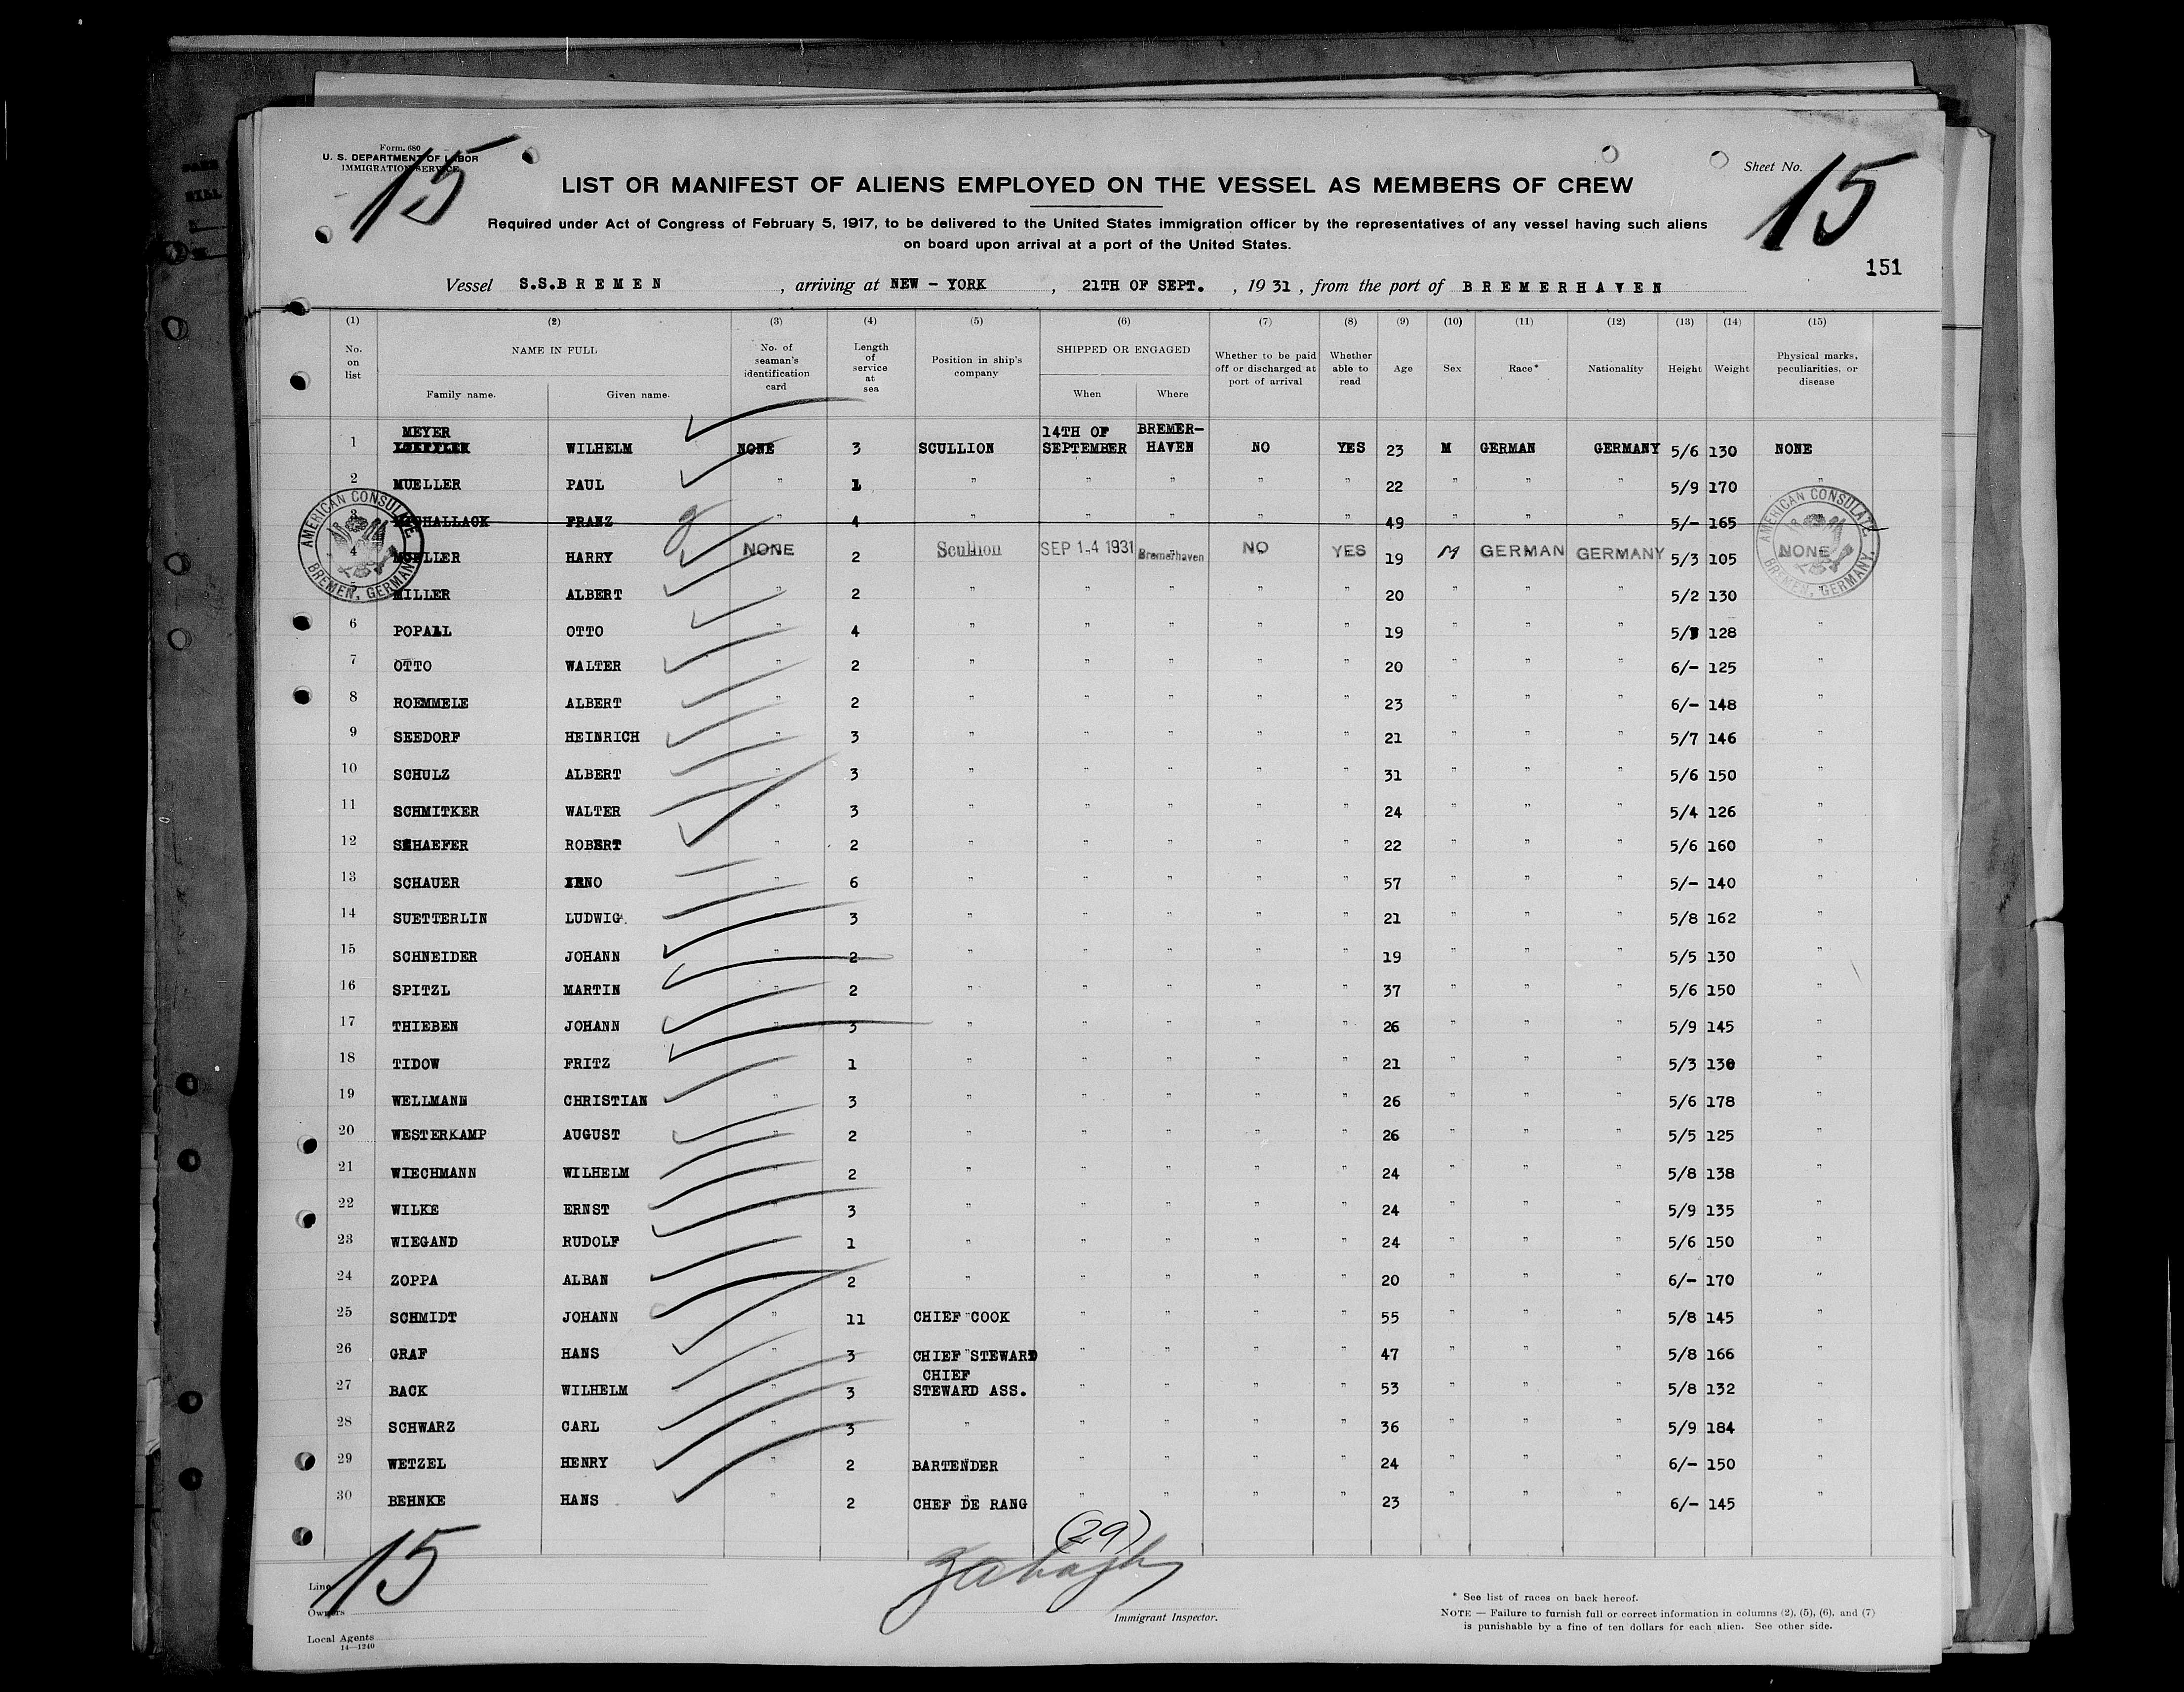 Form. 680
U. S. DEPARTMENT OF LABOR
IMMIGRATION SERVICE
15
Sheet No. 15
LIST OR MANIFEST OF ALIENS EMPLOYED ON THE VESSEL AS MEMBERS OF CREW
Required under Act of Congress of February 5, 1917, to be delivered to the United States immigration officer by the representatives of any vessel having such aliens
on board upon arrival at a port of the United States.
151
Vessel S.S.BREMEN , arriving at NEW - YORK , 21TH OF SEPT. , 19 31 , from the port of BREMERHAVEN
(1) (2) (3) (4) (5) (6) (7) (8) (9) (10) (11) (12) (13) (14) (15)
No. on list NAME IN FULL Family name. Given name. No. of seaman's identification card Length of service at sea Position in ship's company SHIPPED OR ENGAGED When Where Whether to be paid off or discharged at port of arrival Whether able to read Age Sex Race* Nationality Height Weight Physical marks, peculiarities, or disease
1 MEYER WILHELM NONE 3 SCULLION 14TH OF SEPTEMBER BREMER-HAVEN NO YES 23 M GERMAN GERMANY 5/6 130 NONE
2 MUELLER PAUL " 1 " " " " " 22 " " " 5/9 170 "
3 FRANZ " 4 " " " " " 49 " " " 5/- 165 "
4 MUELLER HARRY NONE 2 Scullion SEP 14 1931 Bremerhaven NO YES 19 M GERMAN GERMANY 5/3 105 NONE
AMERICAN CONSULATE BREMEN, GERMANY
AMERICAN CONSULATE BREMEN, GERMANY.
5 MILLER ALBERT " 2 " " " " " 20 " " " 5/2 130 "
6 POPALL OTTO " 4 " " " " " 19 " " " 5/ 128 "
7 OTTO WALTER " 2 " " " " " 20 " " " 6/- 125 "
8 ROEMMELE ALBERT " 2 " " " " " 23 " " " 6/- 148 "
9 SEEDORF HEINRICH " 3 " " " " " 21 " " " 5/7 146 "
10 SCHULZ ALBERT " 3 " " " " " 31 " " " 5/6 150 "
11 SCHMITKER WALTER " 3 " " " " " 24 " " " 5/4 126 "
12 SCHAEFER ROBERT " 2 " " " " " 22 " " " 5/6 160 "
13 SCHAUER " 6 " " " " " 57 " " " 5/- 140 "
14 SUETTERLIN LUDWIG. " 3 " " " " " 21 " " " 5/8 162 "
15 SCHNEIDER JOHANN " 2 " " " " " 19 " " " 5/5 130 "
16 SPITZL MARTIN " 2 " " " " " 37 " " " 5/6 150 "
17 THIEBEN JOHANN " 3 " " " " " 26 " " " 5/9 145 "
18 TIDOW FRITZ 1 " " " " " 21 " " " 5/3 130 "
19 WELLMANN CHRISTIAN " 3 " " " " " 26 " " " 5/6 178 "
20 WESTERKAMP AUGUST " 2 " " " " " 26 " " " 5/5 125 "
21 WIECHMANN WILHELM " 2 " " " " " 24 " " " 5/8 138 "
22 WILKE ERNST " 3 " " " " " 24 " " " 5/9 135 "
23 WIEGAND RUDOLF " 1 " " " " " 24 " " " 5/6 150 "
24 ZOPPA ALBAN " 2 " " " " " 20 " " " 6/- 170 "
25 SCHMIDT JOHANN " 11 CHIEF COOK " " " " 55 " " " 5/8 145 "
26 GRAF HANS " 3 CHIEF STEWARD " " " " 47 " " " 5/8 166 "
27 BACK WILHELM " 3 CHIEF STEWARD ASS. " " " " 53 " " " 5/8 132 "
28 SCHWARZ CARL " 3 " " " " " 36 " " " 5/9 184 "
29 WETZEL HENRY " 2 BARTENDER " " " " 24 " " " 6/- 150 "
30 BEHNKE HANS " 2 CHEF DE RANG " " " " 23 " " " 6/- 145 "
(29)
15
Line
Owners
Local Agents
14—1240
Immigrant Inspector.
* See list of races on back hereof.
NOTE — Failure to furnish full or correct information in columns (2), (5), (6), and (7)
is punishable by a fine of ten dollars for each alien. See other side.